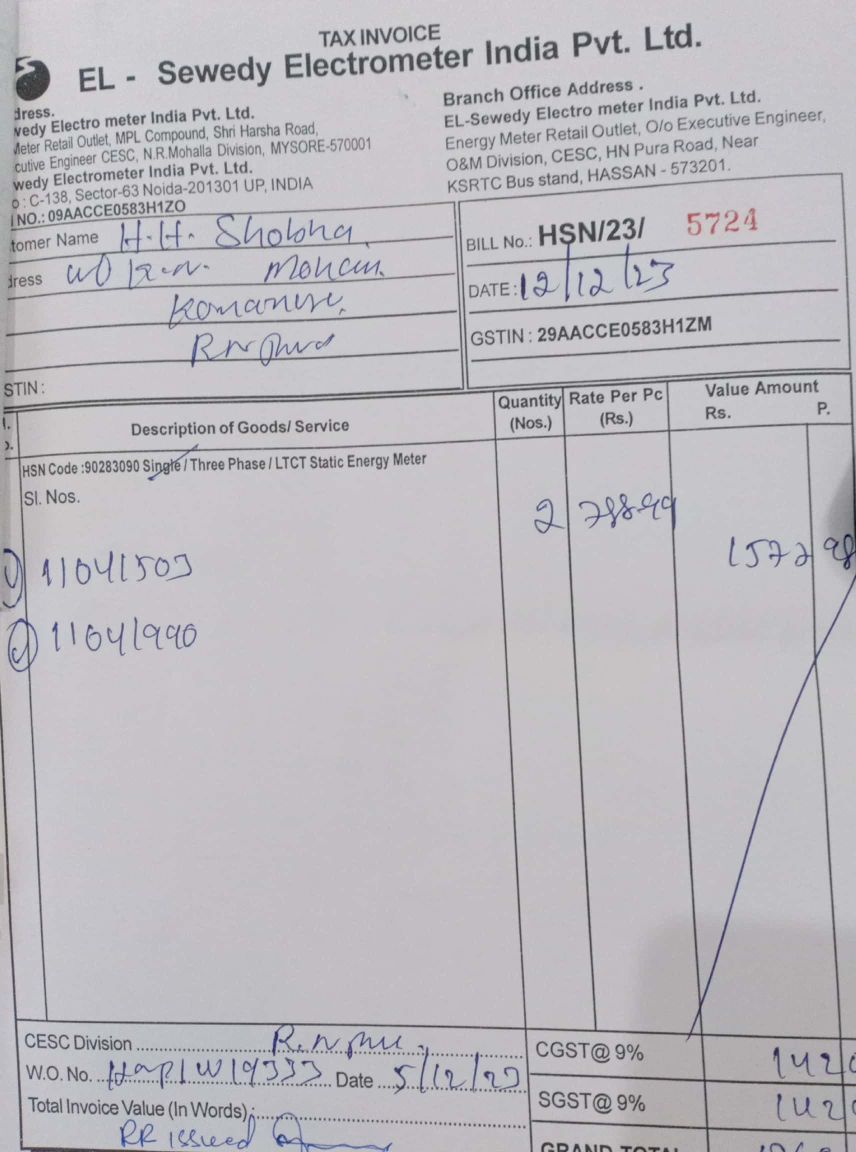 TAX INVOICE
EL - Sewedy Electrometer India Pvt. Ltd.
dress.
wedy Electro meter India Pvt. Ltd.
Meter Retail Outlet, MPL Compound, Shri Harsha Road,
cutive Engineer CESC, N.R.Mohalla Division, MYSORE-570001
wedy Electrometer India Pvt. Ltd.
o : C-138, Sector-63 Noida-201301 UP, INDIA
NO.: 09AACCE0583H1ZO
Branch Office Address .
EL-Sewedy Electro meter India Pvt. Ltd.
Energy Meter Retail Outlet, O/o Executive Engineer,
O&M Division, CESC, HN Pura Road, Near
KSRTC Bus stand, HASSAN - 573201.
tomer Name H.H. Shobha
dress W/O Mohan
STIN :
BILL No.: HSN/23/ 5724
DATE : 12/12/23
GSTIN : 29AACCE0583H1ZM
Description of Goods/ Service Quantity (Nos.) Rate Per Pc (Rs.) Value Amount Rs. P.
HSN Code :90283090 Single / Three Phase / LTCT Static Energy Meter
Sl. Nos.
2 788.99
1) 11041503 1577 98
2) 11041990
CESC Division
W.O. No. Date 5/12/23
Total Invoice Value (In Words) :
RR issued
CGST@ 9% 142
SGST@ 9% 142
GRAND TOTAL